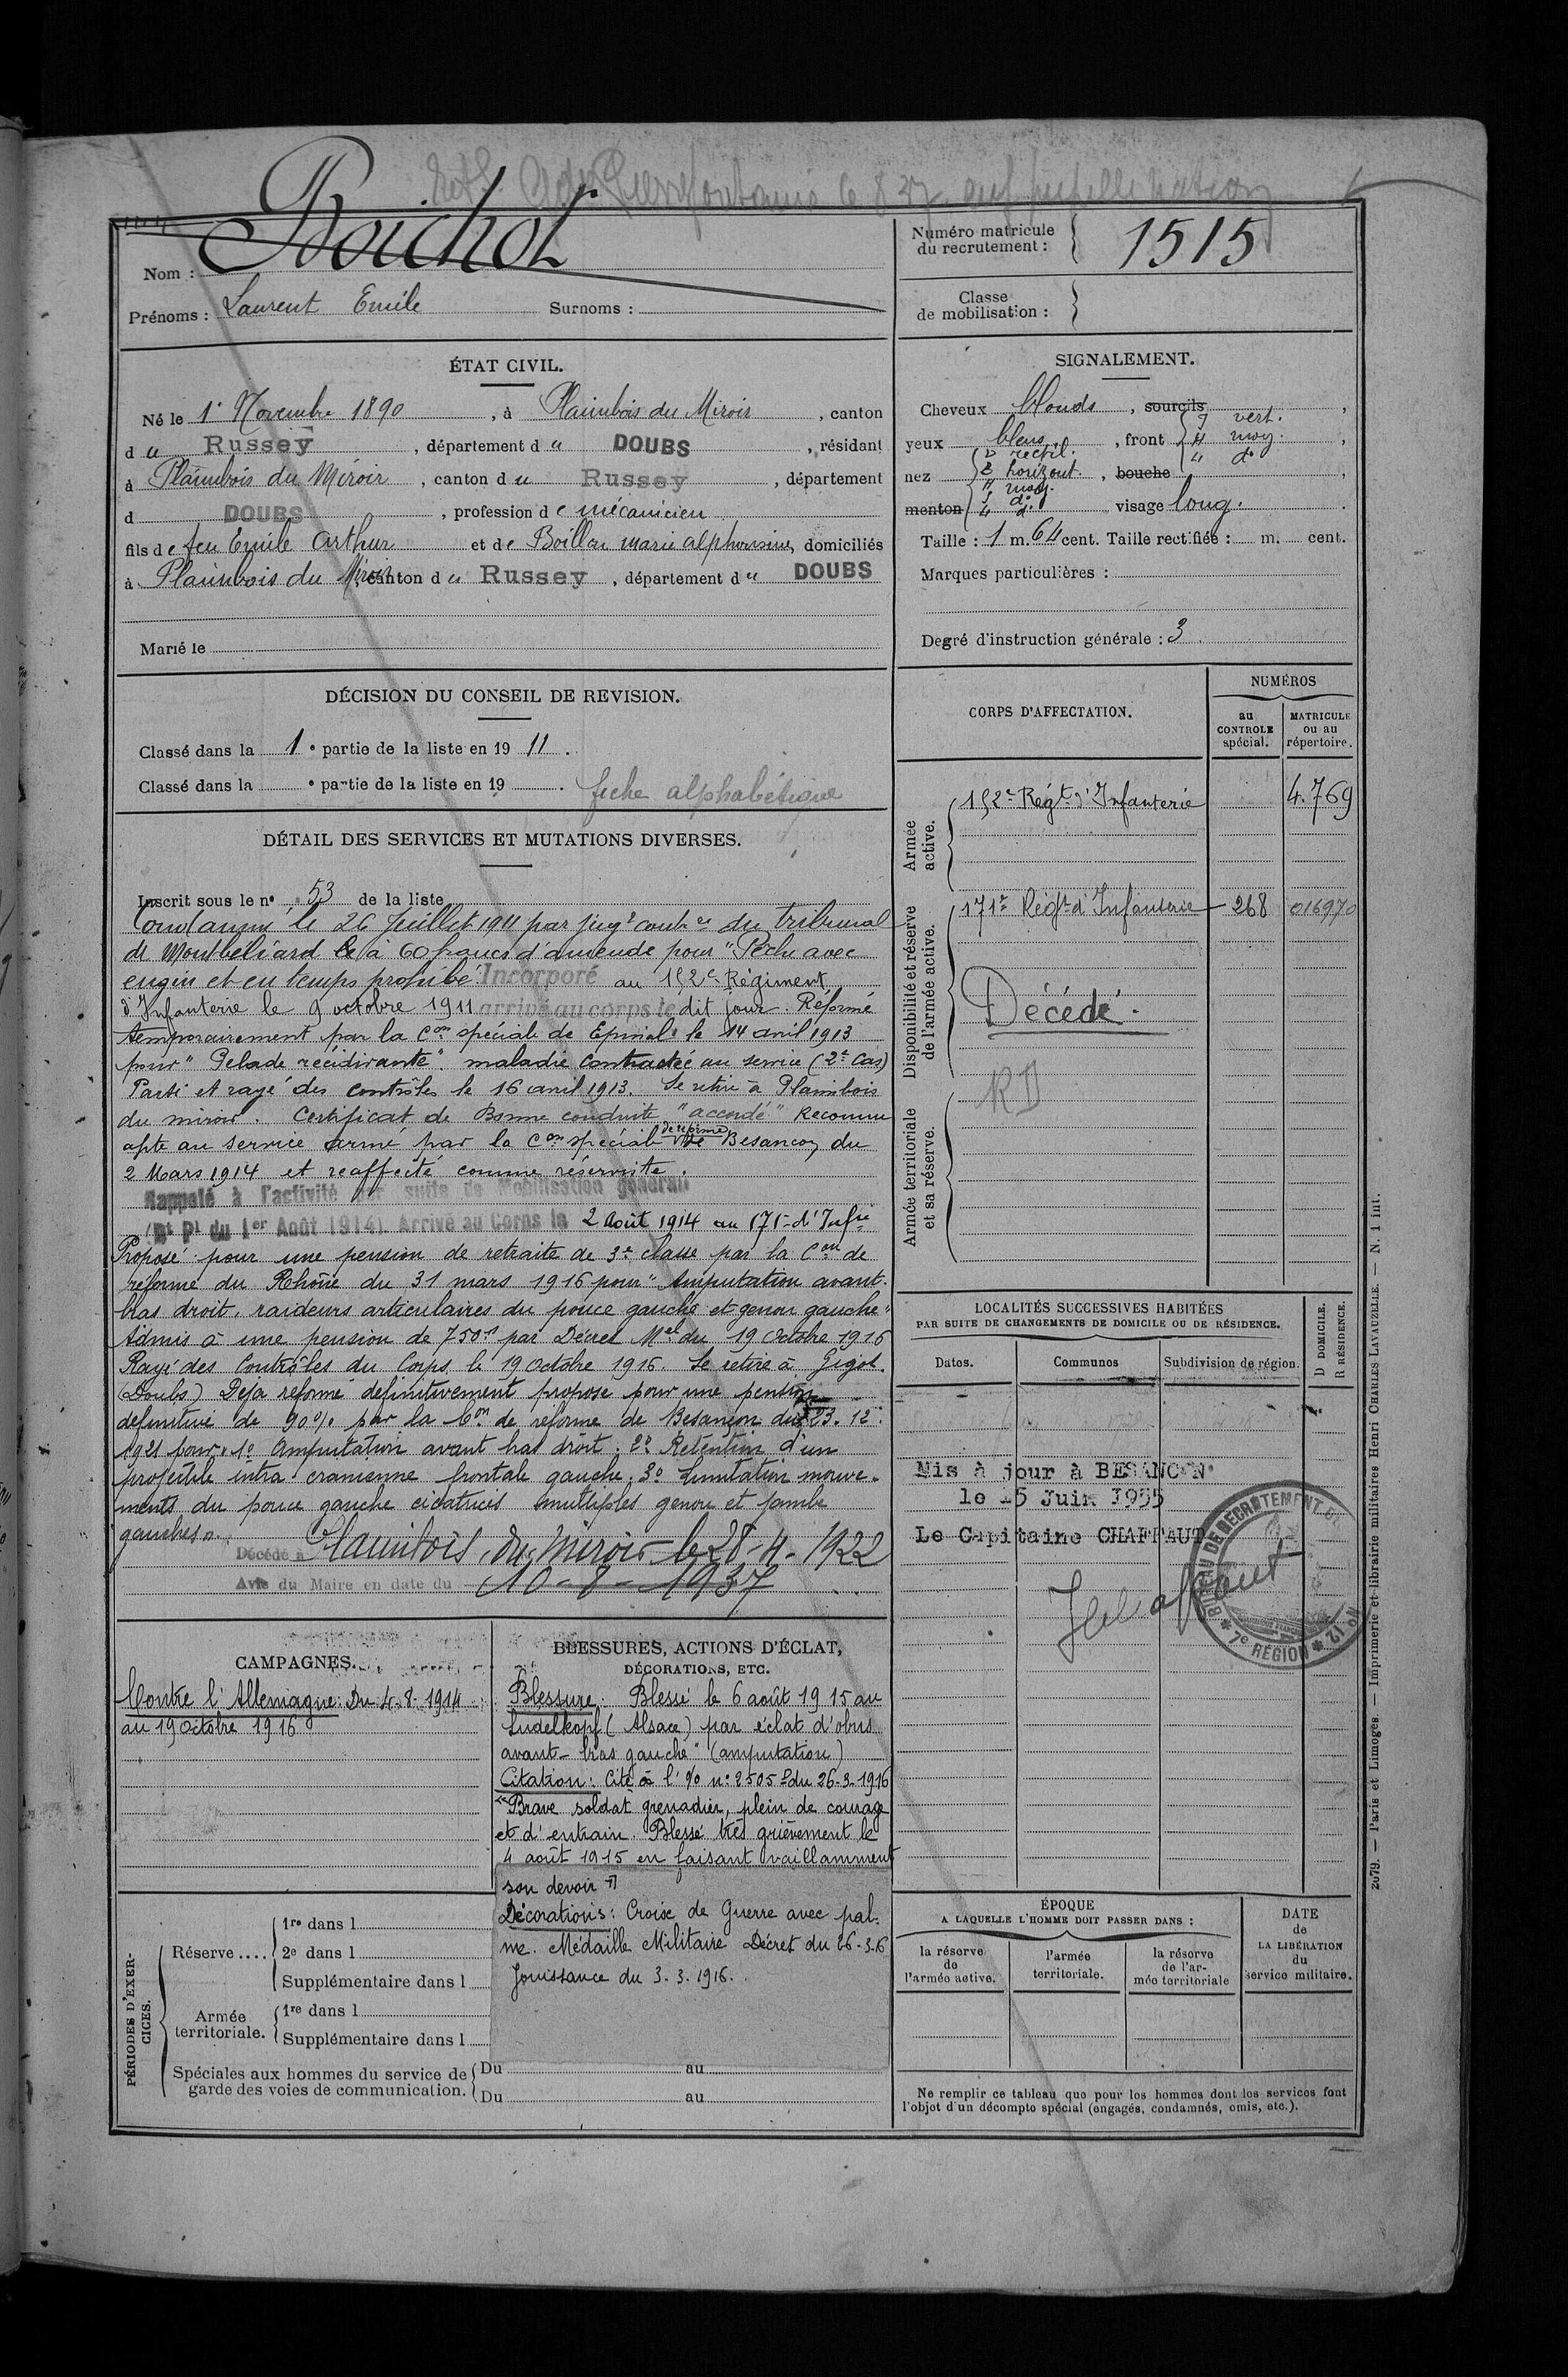 Boichot
Nom :
Prénoms : Laurent Emile Surnoms :
Numéro matricule
du recrutement :
1515
Classe
de mobilisation :
ÉTAT CIVIL.
Né le 1er Novembre 1890, à Plaimbois du Miroir, canton
du Russey, département du DOUBS, résidant
à Plaimbois du Miroir, canton du Russey, département
d DOUBS, profession de mécanicien
fils de feu Emile Arthur et de Boillon marie alphonsine, domiciliés
à Plaimbois du Miroir, canton du Russey, département du DOUBS
Marié le
SIGNALEMENT.
Cheveux blonds, sourcils
yeux bleus, front { J vert.
H moy.
nez { D rectil.
B horizont. , bouche
menton visage long.
Taille : 1 m. 64 cent. Taille rectifiée : m. cent.
Marques particulières :
Degré d'instruction générale : 3.
DÉCISION DU CONSEIL DE REVISION.
Classé dans la 1e partie de la liste en 1911.
Classé dans la e partie de la liste en 19 .
fiche alphabétique
DÉTAIL DES SERVICES ET MUTATIONS DIVERSES.
Inscrit sous le no 53 de la liste
Condamné le 26 Juillet 1911 par jugt contre du tribunal
de Montbéliard à 60 francs d'amende pour "Pêche avec
engin et en temps prohibé" Incorporé au 152e Régiment
d'Infanterie le 9 octobre 1911 arrivé au corps le dit jour. Réformé
temporairement par la Con spéciale de Epinal le 14 avril 1913
pour "Pelade récidivante" maladie contractée au service (2e Cas)
Parti et rayé des contrôles le 16 avril 1913. Se retire à Plaimbois
du miroir. Certificat de Bonne conduite "accordé" Reconnu
apte au service armé par la Con spéciale de réforme de Besançon du
2 Mars 1914 et réaffecté comme réserviste.
Rappelé à l'activité par suite de Mobilisation générale
(Dt Pl du 1er Août 1914). Arrivé au Corps le 2 août 1914 au 171e d'Infie
Proposé pour une pension de retraite de 3e classe par la Con de
réforme du Rhône du 31 mars 1916 pour "Amputation avant-
bras droit, raideurs articulaires du pouce gauche et genou gauche"
Admis à une pension de 750f par Décret Mel du 19 Octobre 1916
Rayé des Contrôles du Corps le 19 Octobre 1916. Se retire à Gigot.
(Doubs) Déjà réformé définitivement proposé pour une pension
définitive de 90% par la Con de réforme de Besançon du 23.12
1921 pour "1o Amputation avant bras droit; 2o Rétention d'un
projectile intra cranienne frontale gauche; 3o Limitation mouve-
ments du pouce gauche cicatrices multiples genou et jambe
gauches".
Décédé à Plaimbois du Miroir le 28-4-1922
Avis du Maire en date du 10-8-1937
CORPS D'AFFECTATION.
NUMÉROS
au
CONTROLE
spécial.
MATRICULE
ou au
répertoire.
Armée
active.
152e Régt d'Infanterie 4.769
Disponibilité et réserve
de l'armée active.
171e Régt d'Infanterie 268 016970
Décédé.
RD
Armée territoriale
et sa réserve.
LOCALITÉS SUCCESSIVES HABITÉES
PAR SUITE DE CHANGEMENTS DE DOMICILE OU DE RÉSIDENCE.
D DOMICILE.
R RÉSIDENCE.
Dates. Communes Subdivision de région.
Mis à jour à BESANCON
le 15 Juin 1955
Le Capitaine CHAFFAUT
BUREAU DE RECRUTEMENT DE
* 7e RÉGION *
CAMPAGNES.
Contre l'Allemagne: Du 4-8-1914
au 19 Octobre 1916
BLESSURES, ACTIONS D'ÉCLAT,
DÉCORATIONS, ETC.
Blessure: Blessé le 6 août 1915 au
Ludelkopf (Alsace) par éclat d'obus
avant-bras gauche" (amputation)
Citation: Cité à l'o/o no 2505 D du 26-3-1916
"Brave soldat grenadier, plein de courage
et d'entrain. Blessé très grièvement le
4 août 1915 en faisant vaillamment
son devoir"
Décorations: Croix de Guerre avec pal-
me. Médaille Militaire Décret du 26-3-16
Jouissance du 3.3.1916.
PÉRIODES D'EXER-
CICES.
Réserve.... 1re dans l
2e dans l
Supplémentaire dans l
Armée
territoriale. 1re dans l
Supplémentaire dans l
Spéciales aux hommes du service de
garde des voies de communication.
Du au
Du au
ÉPOQUE
A LAQUELLE L'HOMME DOIT PASSER DANS :
la réserve
de
l'armée active.
l'armée
territoriale.
la réserve
de l'ar-
mée territoriale
DATE
de
LA LIBÉRATION
du
service militaire.
Ne remplir ce tableau que pour les hommes dont les services font
l'objet d'un décompte spécial (engagés, condamnés, omis, etc.).
2079. — Paris et Limoges. — Imprimerie et librairie militaires Henri CHARLES LAVAUZELLE. — N. 1 int.